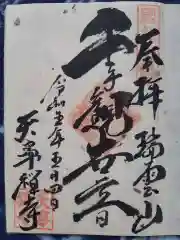 奉拝 瑞雲山
千手観世音
令和五年五月四日
禅寺